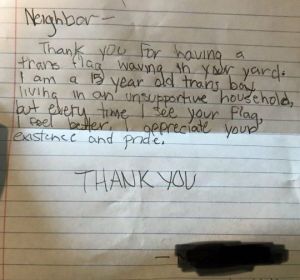 Neighbor-
Thank you for having a
trans flag waving in your yard.
I am a 13 year old trans boy
living in an unsupportive household,
but every time I see your flag,
I feel better. I appreciate your
existence and pride.
THANK YOU
-